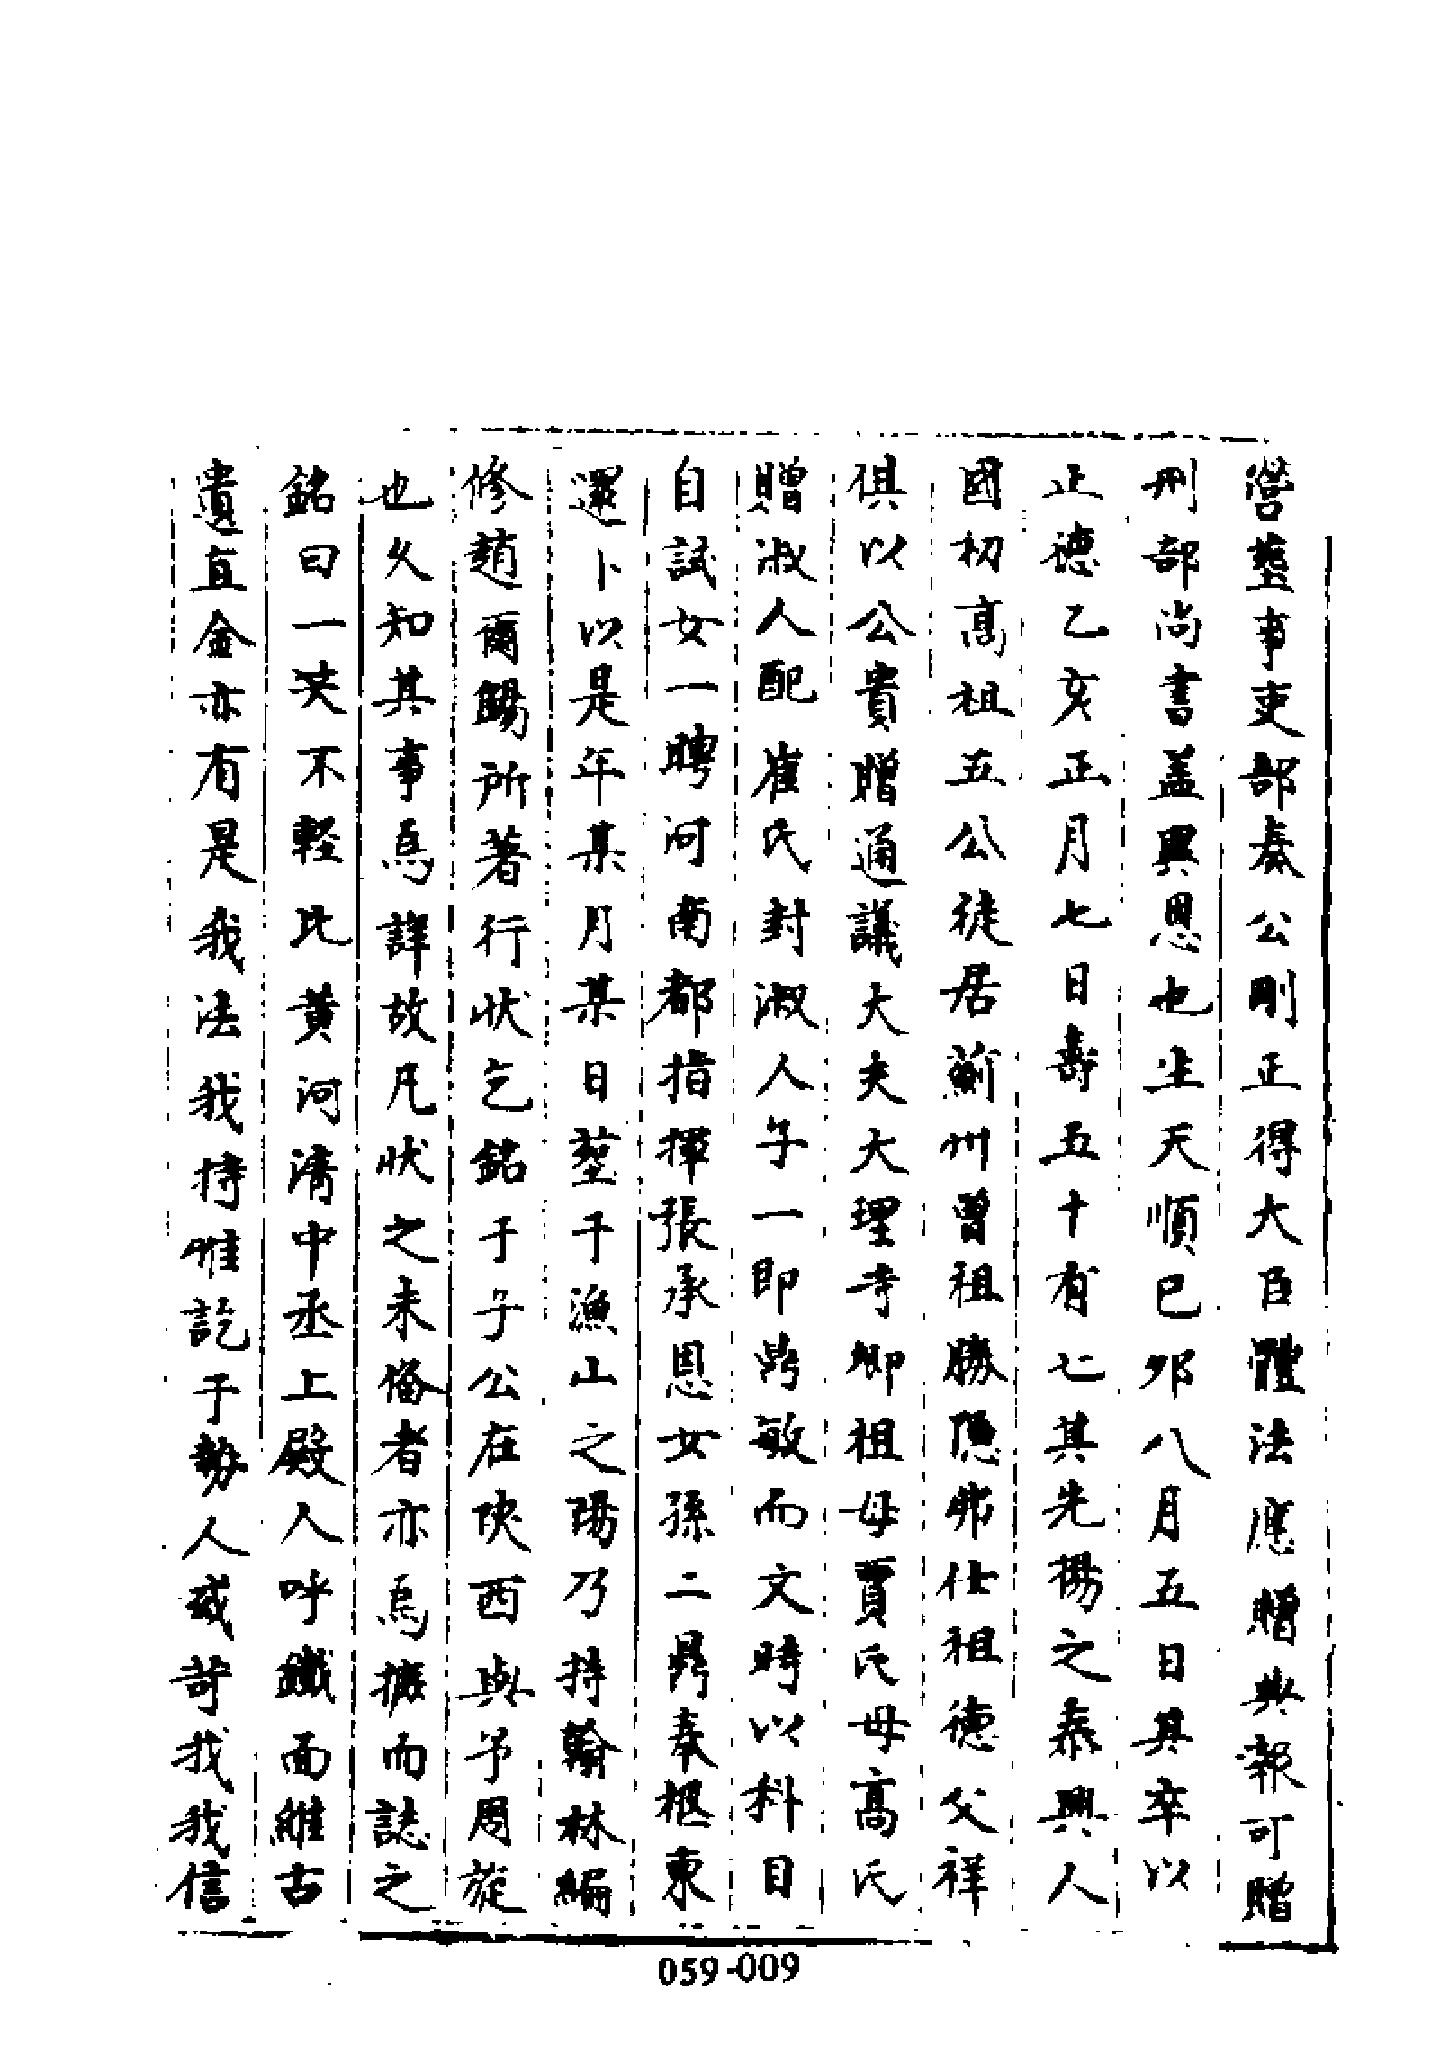 營塟事吏部奏公剛正得大臣體法應贈典報可贈
刑部尚書盖異恩也生天順己夘八月五日其卒以
正德乙亥正月七日壽五十有七其先揚之泰興人
國初高祖五公徒居薊州曾祖勝隠弗仕祖德父祥
俱以公貴贈通議大夫大理寺卿祖母賈氏母高氏
贈淑人配崔氏封淑人子一即鼎敏而文時以科目
自試女一聘河南都指揮張承恩女孫二鼎奉柩東
還卜以是年某月某日塟于漁山之陽乃持翰林編
修趙爾錫所著行狀乞銘于予公在陜西與予周旋
也久知其事爲詳故凡狀之未偹者亦爲摭而誌之
銘曰一笑不輕比黄河清中丞上殿人呼鐵面維古
遺直金亦有是我法我持惟訖于勢人或苛我我信